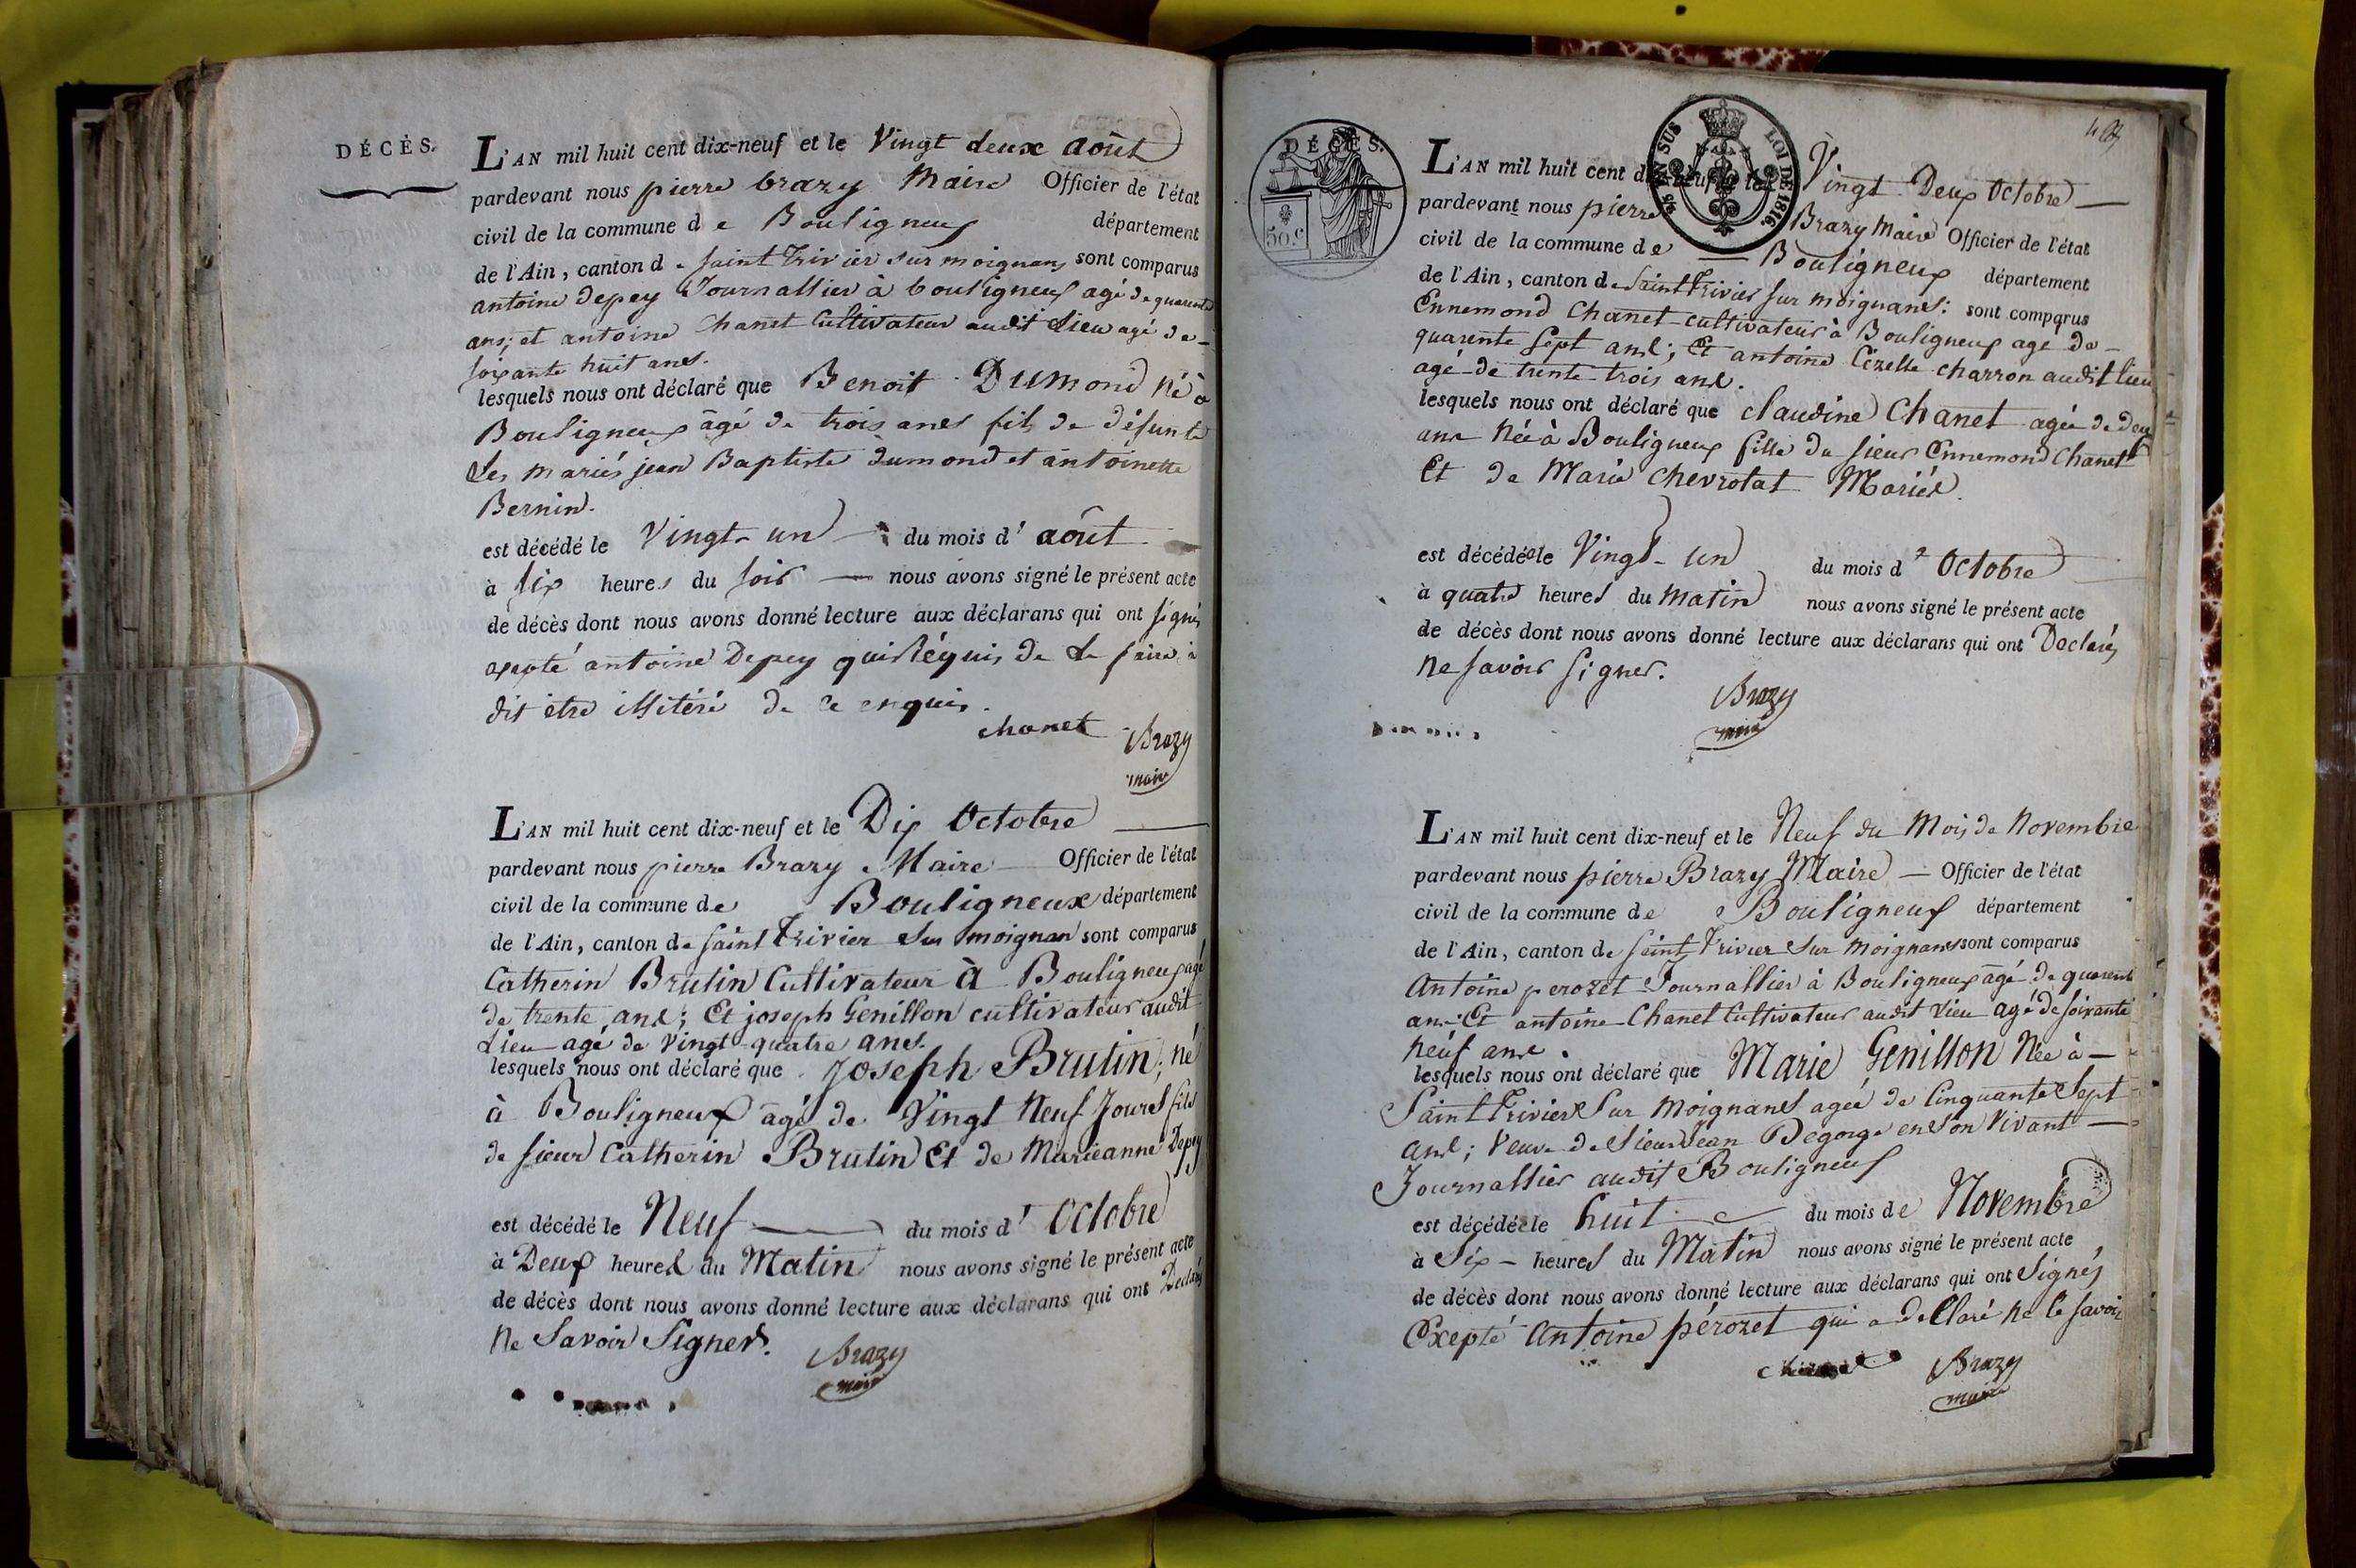 DÉCÈS.
L'AN mil huit cent dix-neuf et le Vingt deux août
pardevant nous pierre brazy Maire Officier de l'état
civil de la commune de Bouligneux département
de l'Ain, canton de saint Trivier sur moignans sont comparus
antoine depey Journallier à bouligneux agé de quarente
ans; et antoine Chanet Cultivateur audit Lieu agé de
soixante huit ans.
lesquels nous ont déclaré que Benoit Dumond né à
Bouligneux âgé de trois ans fils de défunts
Les mariés jean Baptiste dumond et antoinette
Bernin.
est décédé le Vingt-un du mois d'août
à six heures du soir nous avons signé le présent acte
de décès dont nous avons donné lecture aux déclarans qui ont signés
exepté antoine Depey qui Réquis de Le faire a
dit être illitéré de ce enquis.
chanet Brazy
maire
L'AN mil huit cent dix-neuf et le Dix Octobre
pardevant nous pierre Brazy Maire Officier de l'état
civil de la commune de Bouligneux département
de l'Ain, canton de saint Trivier sur moignan sont comparus
Catherin Brutin Cultivateur à Bouligneux agé
de trente ans; Et joseph Genillon cultivateur audit
Lieu agé de vingt-quatre ans.
lesquels nous ont déclaré que Joseph Brutin, né
à Bouligneux âgé de Vingt Neuf Jours fils
de sieur Catherin Brutin Et de Marieanne Depey
est décédé le Neuf du mois d'Octobre
à Deux heures du Matin nous avons signé le présent acte
de décès dont nous avons donné lecture aux déclarans qui ont Declarés
Ne Savoir Signer.
Brazy
maire
DÉCÈS.
50.c
EN SUS
LOI DE 1816.
L'AN mil huit cent dix-neuf et le Vingt Deux Octobre
pardevant nous pierre Brazy Maire Officier de l'état
civil de la commune de Bouligneux département
de l'Ain, canton de Saint Trivier sur moignans: sont comparus
Ennemond Chanet cultivateur à Bouligneux age de
quarente sept ans; Et antoine Cézelle charron audit lieu
agé de trente trois ans.
lesquels nous ont déclaré que claudine Chanet agée de deux
ans Née à Bouligneux fille du sieur Ennemond Chanet
Et de Marie chevrotat Mariés.
est décédée le Vingt-un du mois d'Octobre
à quatre heures du matin nous avons signé le présent acte
de décès dont nous avons donné lecture aux déclarans qui ont Declarés
ne savoir signer.
Brazy
maire
L'AN mil huit cent dix-neuf et le Neuf du Mois de Novembre
pardevant nous pierre Brazy Maire Officier de l'état
civil de la commune de Bouligneux département
de l'Ain, canton de saint Trivier Sur Moignans sont comparus
Antoine perozet Journallier à Bouligneux âgé de quarente
ans: Et antoine Chanet Cultivateur audit Lieu agé de soixante
neuf ans.
lesquels nous ont déclaré que Marie Genillon Née à
Saint Trivier Sur Moignans agée de Cinquante Sept
ans; Veuve de Sieur Jean Degorge en son Vivant
Journallier audit Bouligneux
est décédée le huit du mois de Novembre
à Six heures du Matin nous avons signé le présent acte
de décès dont nous avons donné lecture aux déclarans qui ont Signés
Exepté Antoine pérozet qui a declaré ne le savoir
Brazy
maire